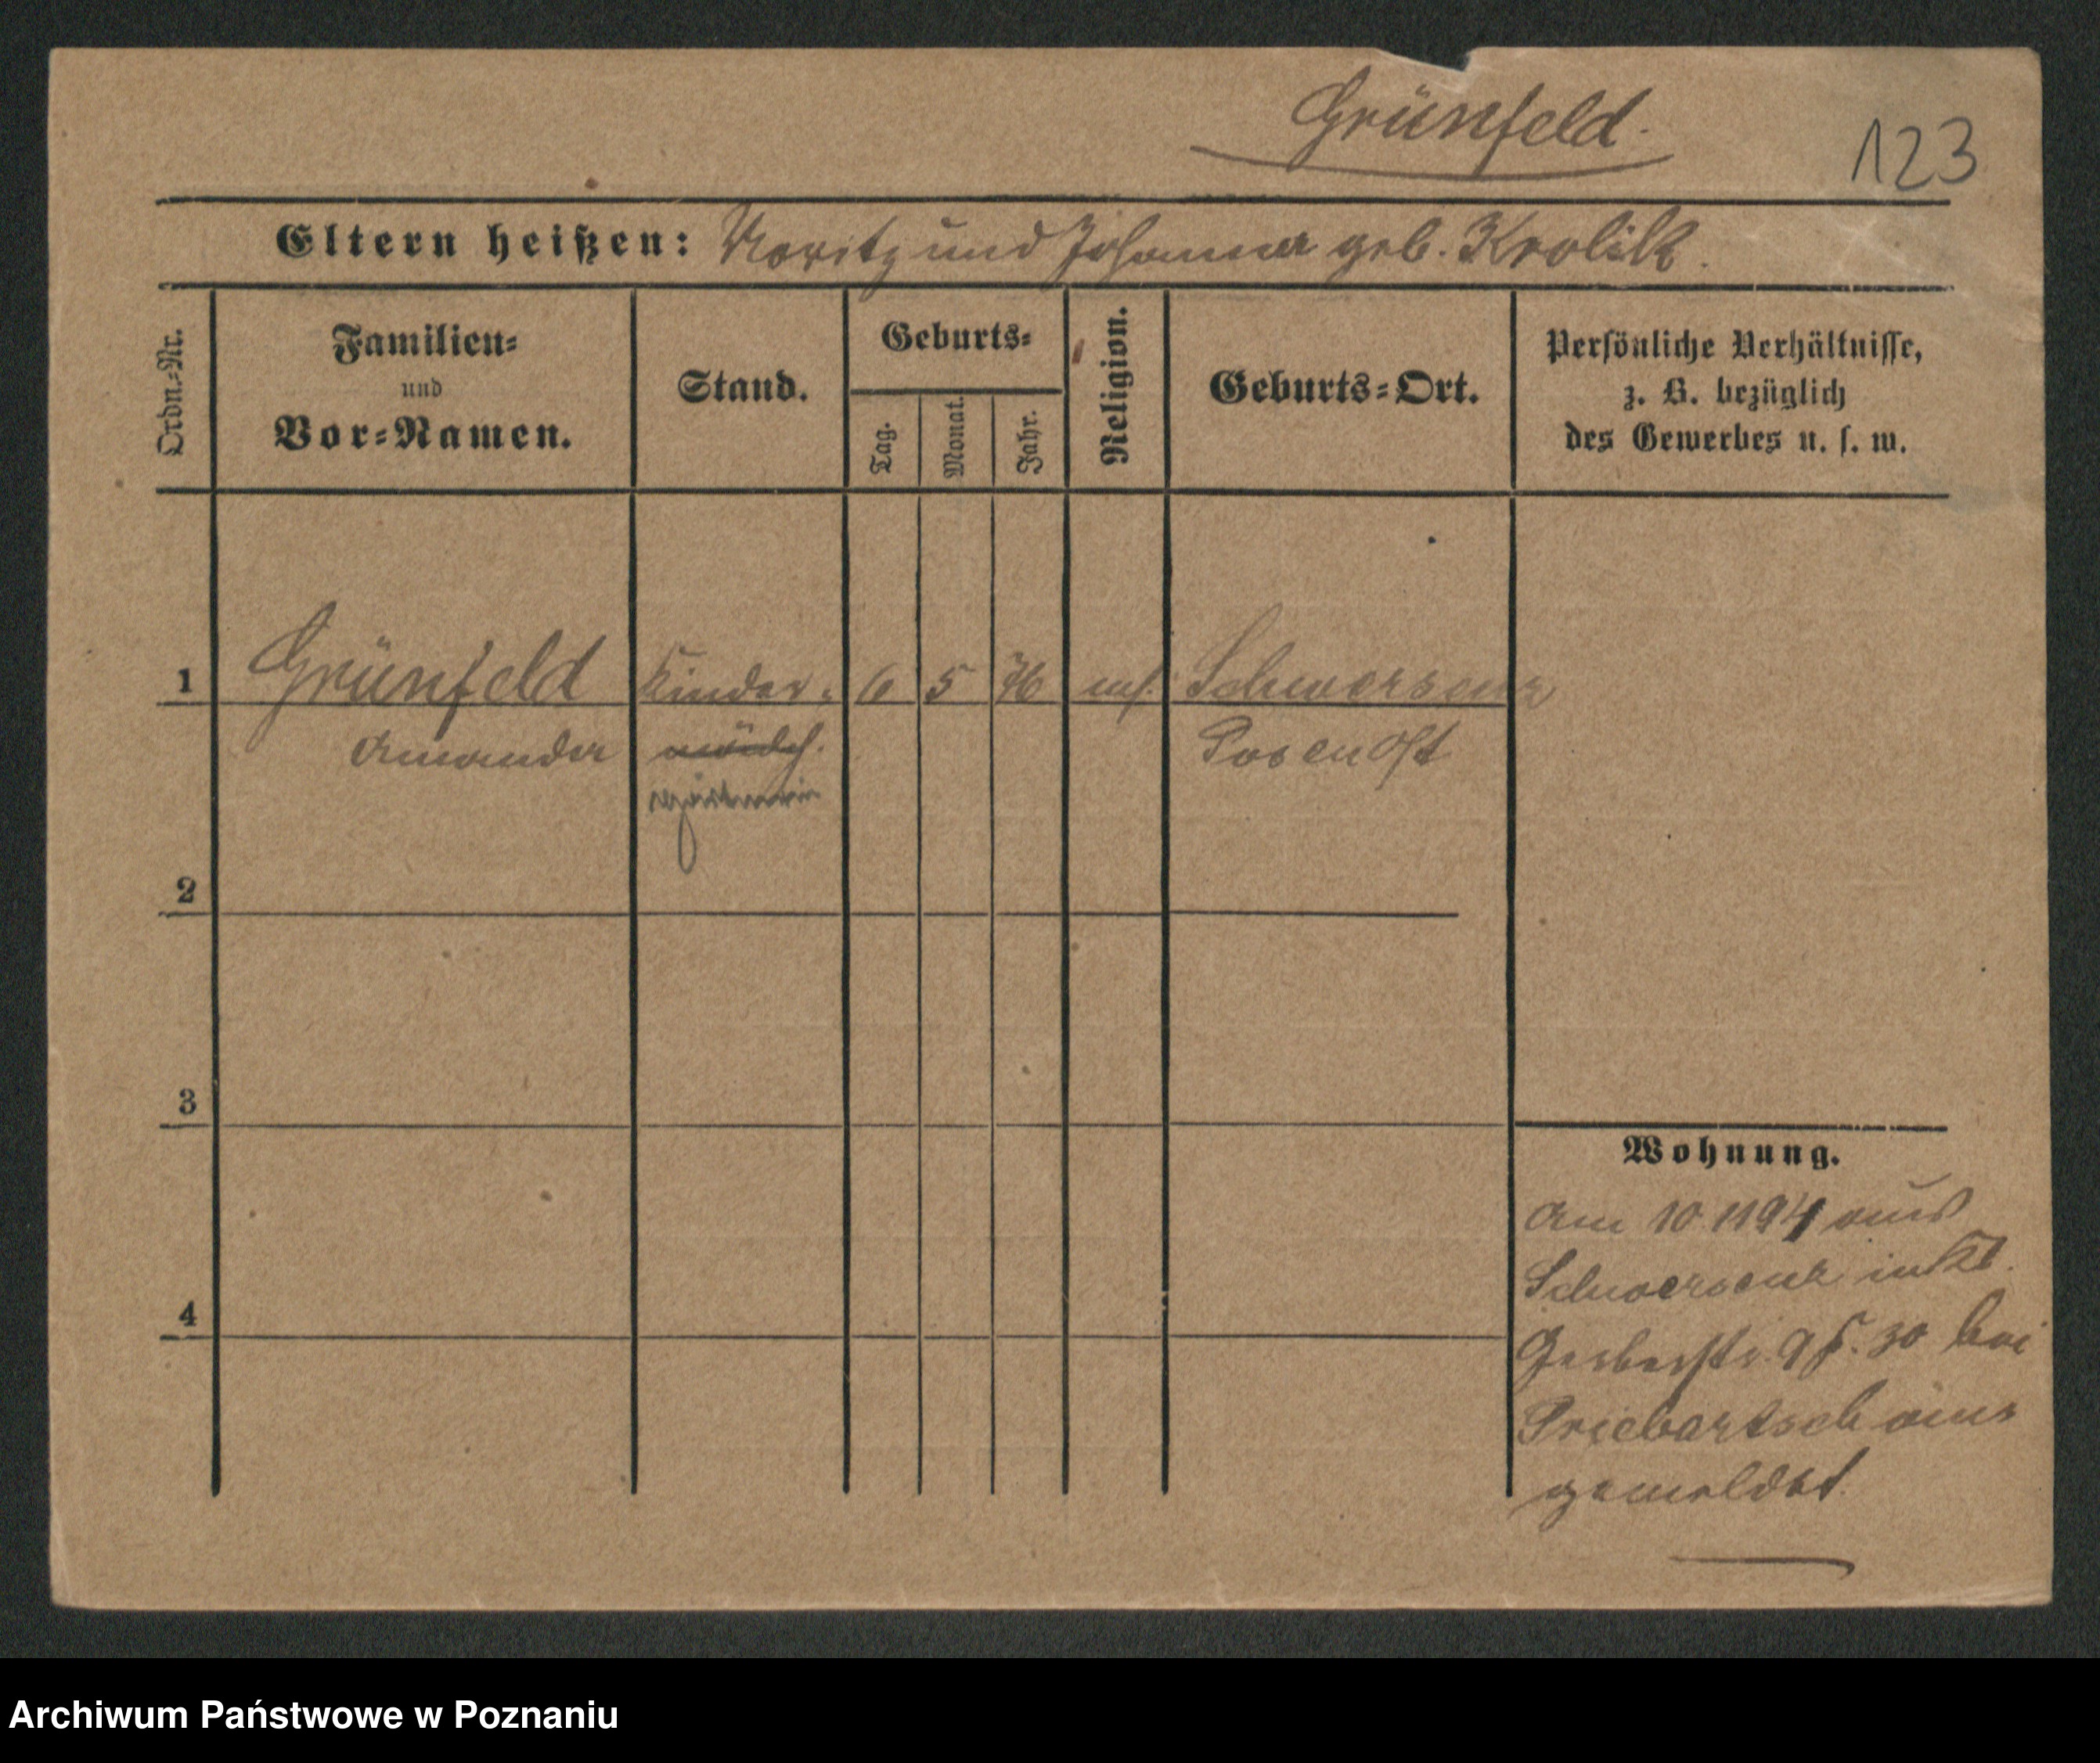 Grünfeld.
123
Eltern heißen: Moritz und Johanna geb. Krolik.
Ordn.-Nr.
Familien-
und
Vor-Namen.
Stand.
Geburts-
Tag.
Monat.
Jahr.
Religion.
Geburts-Ort.
Persönliche Verhältnisse,
z. B. bezüglich
des Gewerbes u. s. w.
1 Grünfeld Kinder- 6 5 76 Schwersenz
Amanda mädch. Posen Ost
gärtnerin
2
3
4
Wohnung.
Am 10 11 94 aus
Schwersenz in Kl.
Gerberstr. 9 bei
Priebatsch ein
gemeldet.
Archiwum Państwowe w Poznaniu